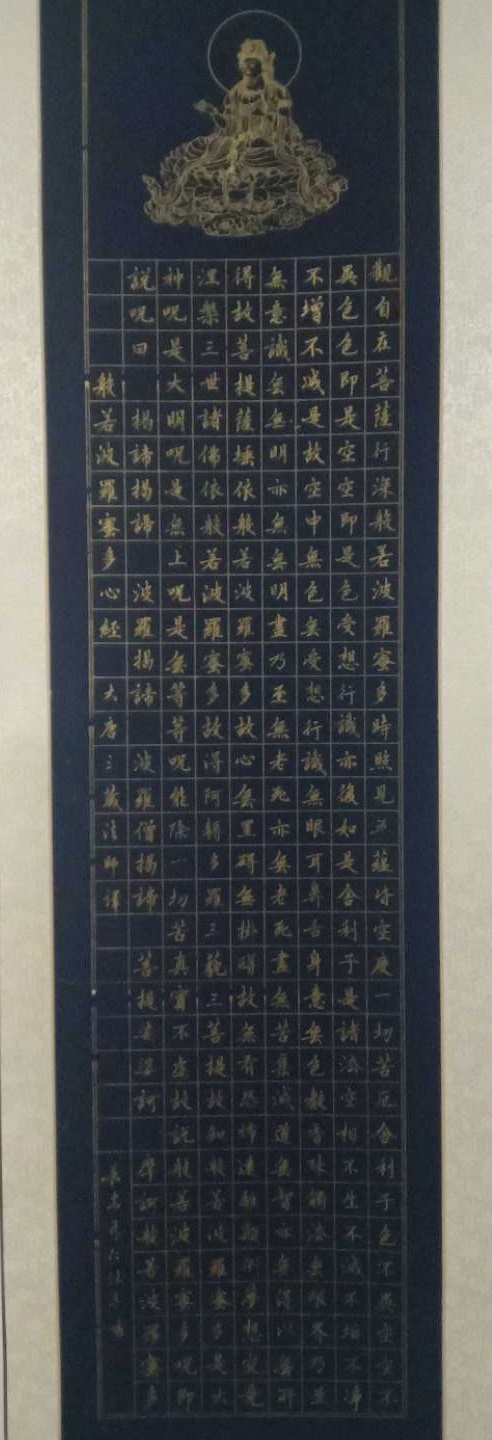 觀自在菩薩行深般若波羅蜜多時照見五蘊皆空度一切苦厄舍利子色不異空空不
異色色即是空空即是色受想行識亦復如是舍利子是諸法空相不生不滅不垢不淨
不增不減是故空中無色无受想行識無眼耳鼻舌身意无色聲香味觸法无眼界乃至
無意識无無明亦無无明盡乃至無老死亦无老死盡無苦集滅道無智亦無得以无所
得故菩提薩埵依般若波羅蜜多故心无罣礙無掛礙故無有恐怖遠離顛倒夢想究竟
涅槃三世諸佛依般若波羅蜜多故得阿耨多羅三藐三菩提故知般若波羅蜜多是大
神呪是大明呪是無上呪是无等等呪能除一切苦真實不虛故說般若波羅蜜多呪即
說呪曰 揭諦揭諦 波羅揭諦 波羅僧揭諦 菩提娑婆訶 摩訶般若波羅蜜多
般若波羅蜜多心經 大唐三藏法師譯